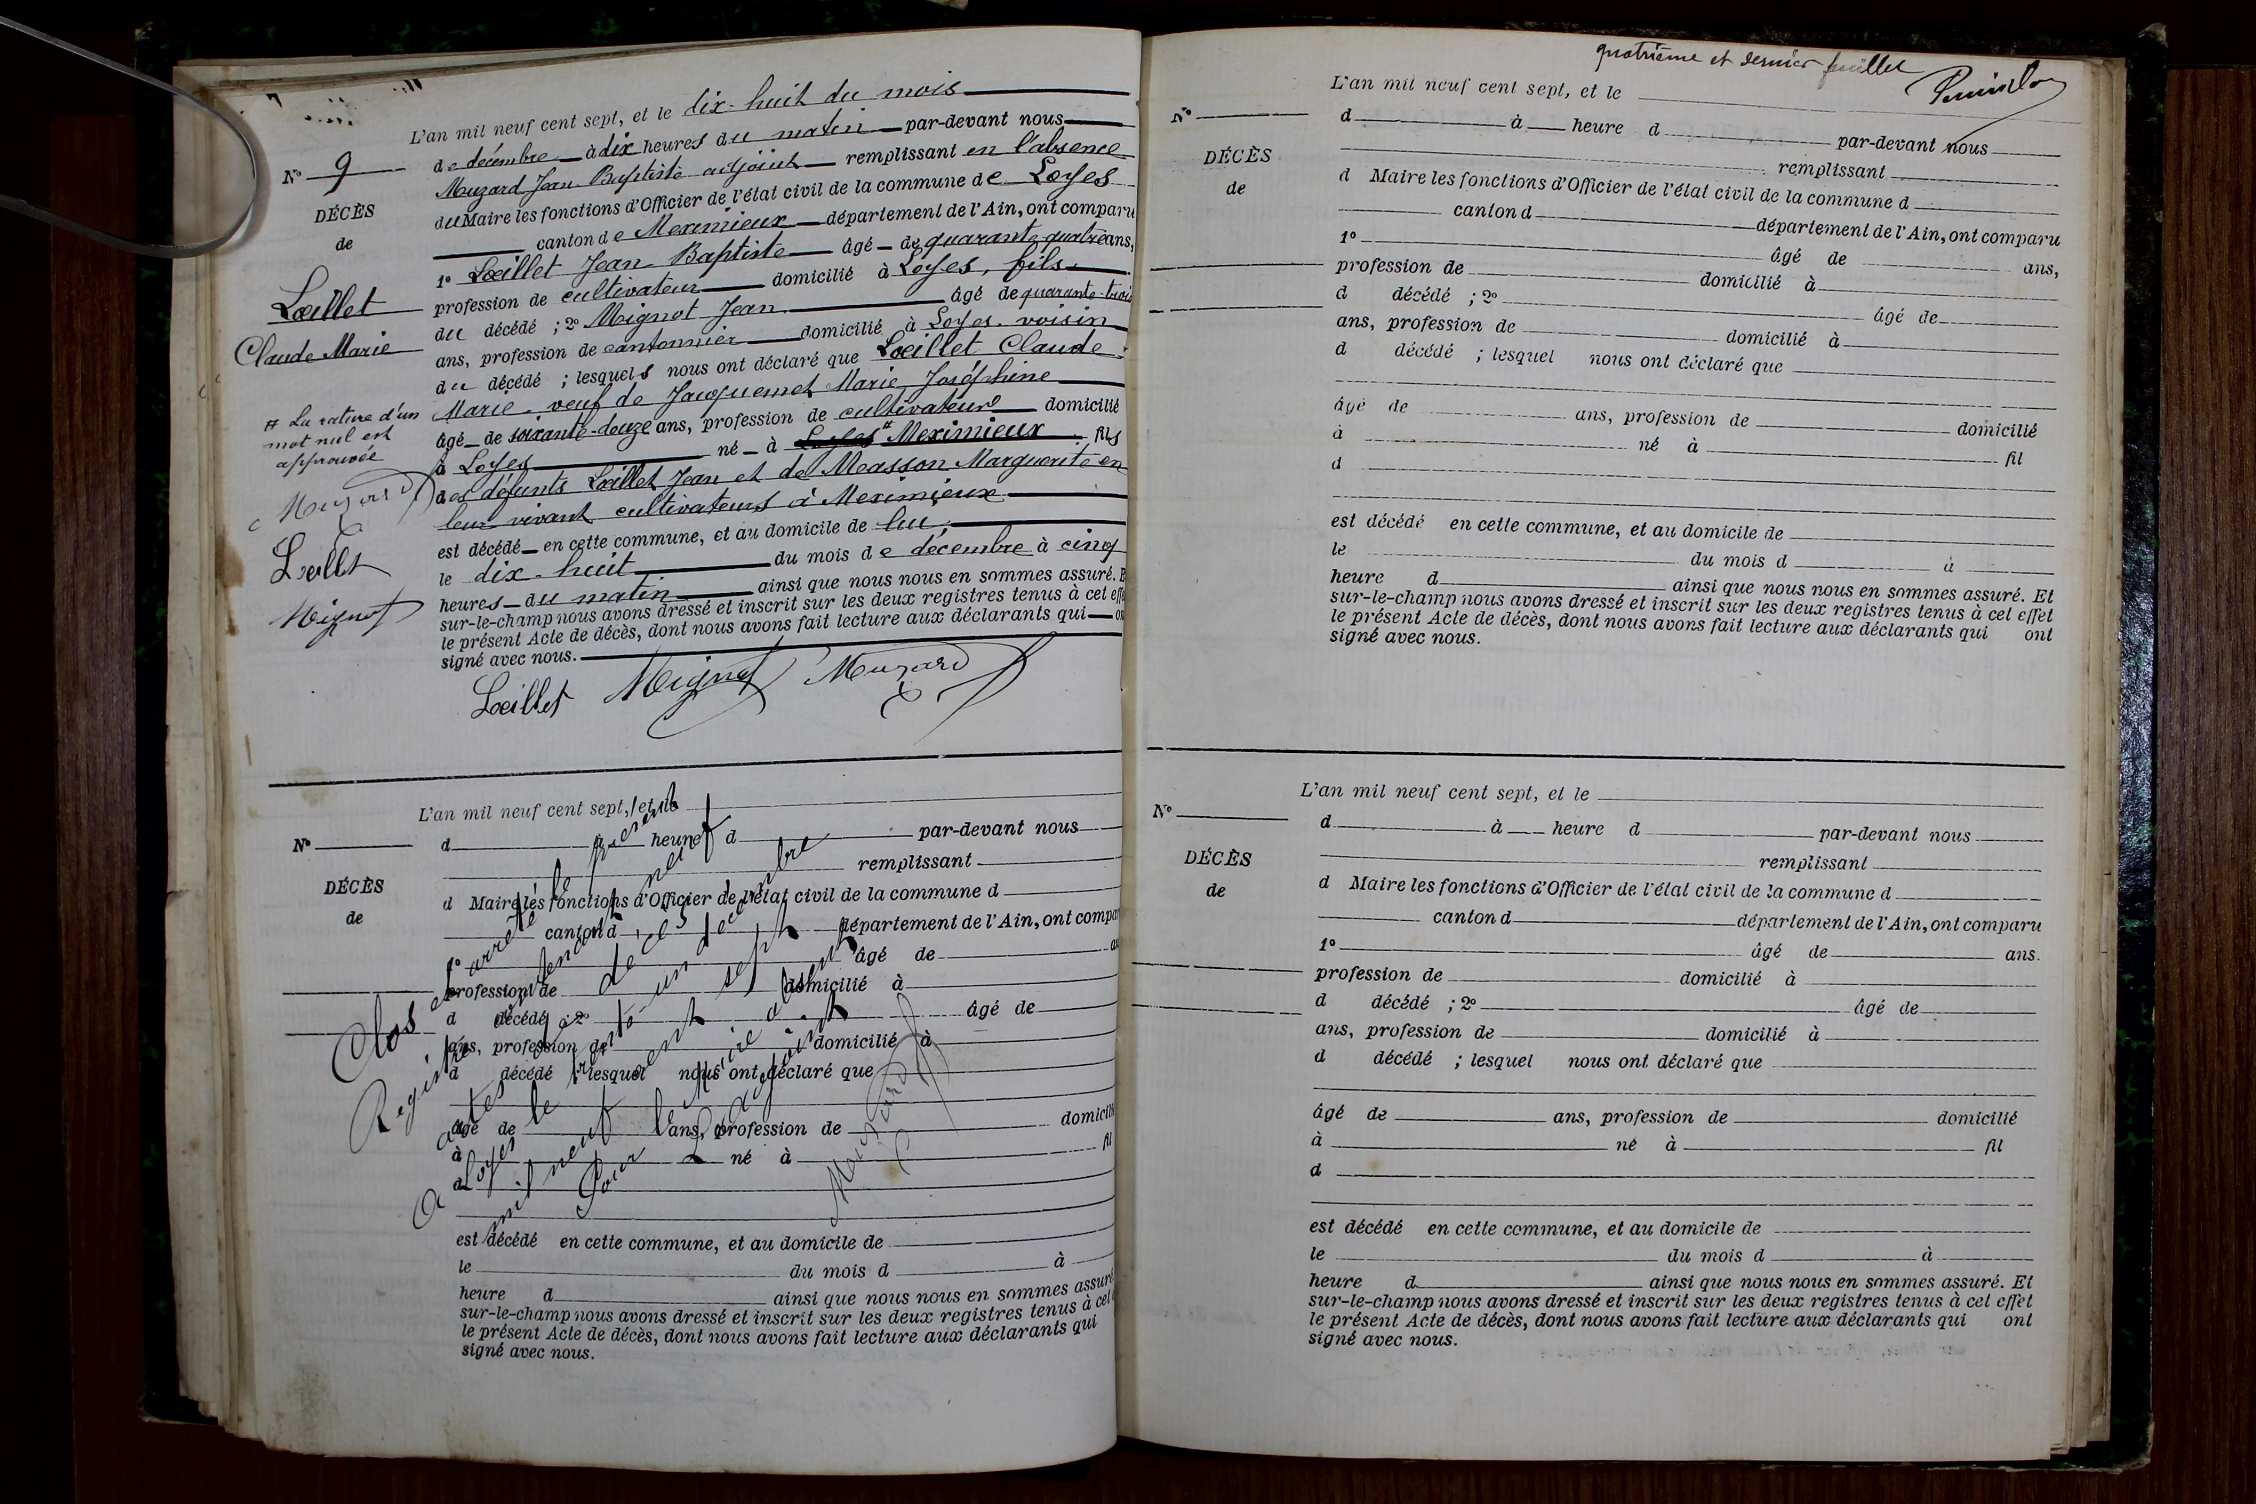 L'an mil neuf cent sept, et le dix-huit du mois
de décembre à dix heures du matin par-devant nous
Muzard Jean Baptiste adjoint remplissant en l'absence
du Maire les fonctions d'Officier de l'état civil de la commune de Loyes
canton de Meximieux département de l'Ain, ont comparu
1° Lœillet Jean Baptiste âgé de quarante-quatre ans,
profession de cultivateur domicilié à Loyes, fils
du décédé ; 2° Mignot Jean âgé de quarante-trois
ans, profession de cantonnier domicilié à Loyes voisin
du décédé ; lesquels nous ont déclaré que Lœillet Claude
Marie veuf de Jacquemet Marie Joséphine
âgé de soixante-douze ans, profession de cultivateur domicilié
à Loyes né à Loyes # Meximieux fils
des défunts Lœillet Jean et de Measson Marguerite en
leur vivant cultivateurs à Meximieux
est décédé en cette commune, et au domicile de lui
le dix-huit du mois de décembre à cinq
heures du matin ainsi que nous nous en sommes assuré. E
sur-le-champ nous avons dressé et inscrit sur les deux registres tenus à cet effe
le présent Acte de décès, dont nous avons fait lecture aux déclarants qui on
signé avec nous.
Lœillet Mignot Muzard
N° 9
DÉCÈS
de
Lœillet
Claude Marie
# La rature d'un
mot nul est
approuvée
Muzard
Lœillet
Mignot
L'an mil neuf cent sept, et le
N° d à heure d par-devant nous
remplissant
DÉCÈS
de
d Maire les fonctions d'Officier de l'état civil de la commune d
canton d département de l'Ain, ont compar
1° âgé de an
profession de domicilié à
d décédé ; 2° âgé de
ans, profession de domicilié à
d décédé ; lesquel nous ont déclaré que
âgé de ans, profession de domicili
à né à fil
d
est décédé en cette commune, et au domicile de
le du mois d à
heure d ainsi que nous nous en sommes assuré
sur-le-champ nous avons dressé et inscrit sur les deux registres tenus à cet
le présent Acte de décès, dont nous avons fait lecture aux déclarants qui
signé avec nous.
Clos et arrêté le présent
Registre contenant neuf
actes de décès
A Loyes le trente-un décembre
mil neuf cent sept
Pour le Maire absent
L'adjoint
Muzard
quatrième et dernier feuillet
L'an mil neuf cent sept, et le
N° d à heure d par-devant nous
remplissant
DÉCÈS
de
d Maire les fonctions d'Officier de l'état civil de la commune d
canton d département de l'Ain, ont comparu
1° âgé de ans,
profession de domicilié à
d décédé ; 2° âgé de
ans, profession de domicilié à
d décédé ; lesquel nous ont déclaré que
âgé de ans, profession de domicilié
à né à fil
d
est décédé en cette commune, et au domicile de
le du mois d à
heure d ainsi que nous nous en sommes assuré. Et
sur-le-champ nous avons dressé et inscrit sur les deux registres tenus à cet effet
le présent Acte de décès, dont nous avons fait lecture aux déclarants qui ont
signé avec nous.
L'an mil neuf cent sept, et le
N° d à heure d par-devant nous
remplissant
DÉCÈS
de
d Maire les fonctions d'Officier de l'état civil de la commune d
canton d département de l'Ain, ont comparu
1° âgé de ans.
profession de domicilié à
d décédé ; 2° âgé de
ans, profession de domicilié à
d décédé ; lesquel nous ont déclaré que
âgé de ans, profession de domicilié
à né à fil
d
est décédé en cette commune, et au domicile de
le du mois d à
heure d ainsi que nous nous en sommes assuré. Et
sur-le-champ nous avons dressé et inscrit sur les deux registres tenus à cet effet
le présent Acte de décès, dont nous avons fait lecture aux déclarants qui ont
signé avec nous.